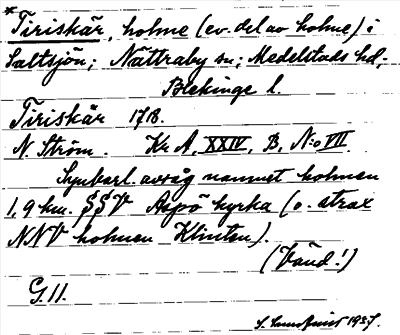 *Tiriskär, holme (ev. del av holme) i
Saltsjön; Nättraby sn; Medelstads hd;
Blekinge l.
Tiriskär 17B.
N. Ström. Kr A, XXIV, B, No VII
Synbarl. avsåg namnet holmen
1,9 km. SSV Aspö kyrka (o. strax
NNV holmen Klinten).
(Vänd!)
G. 11.
1937.